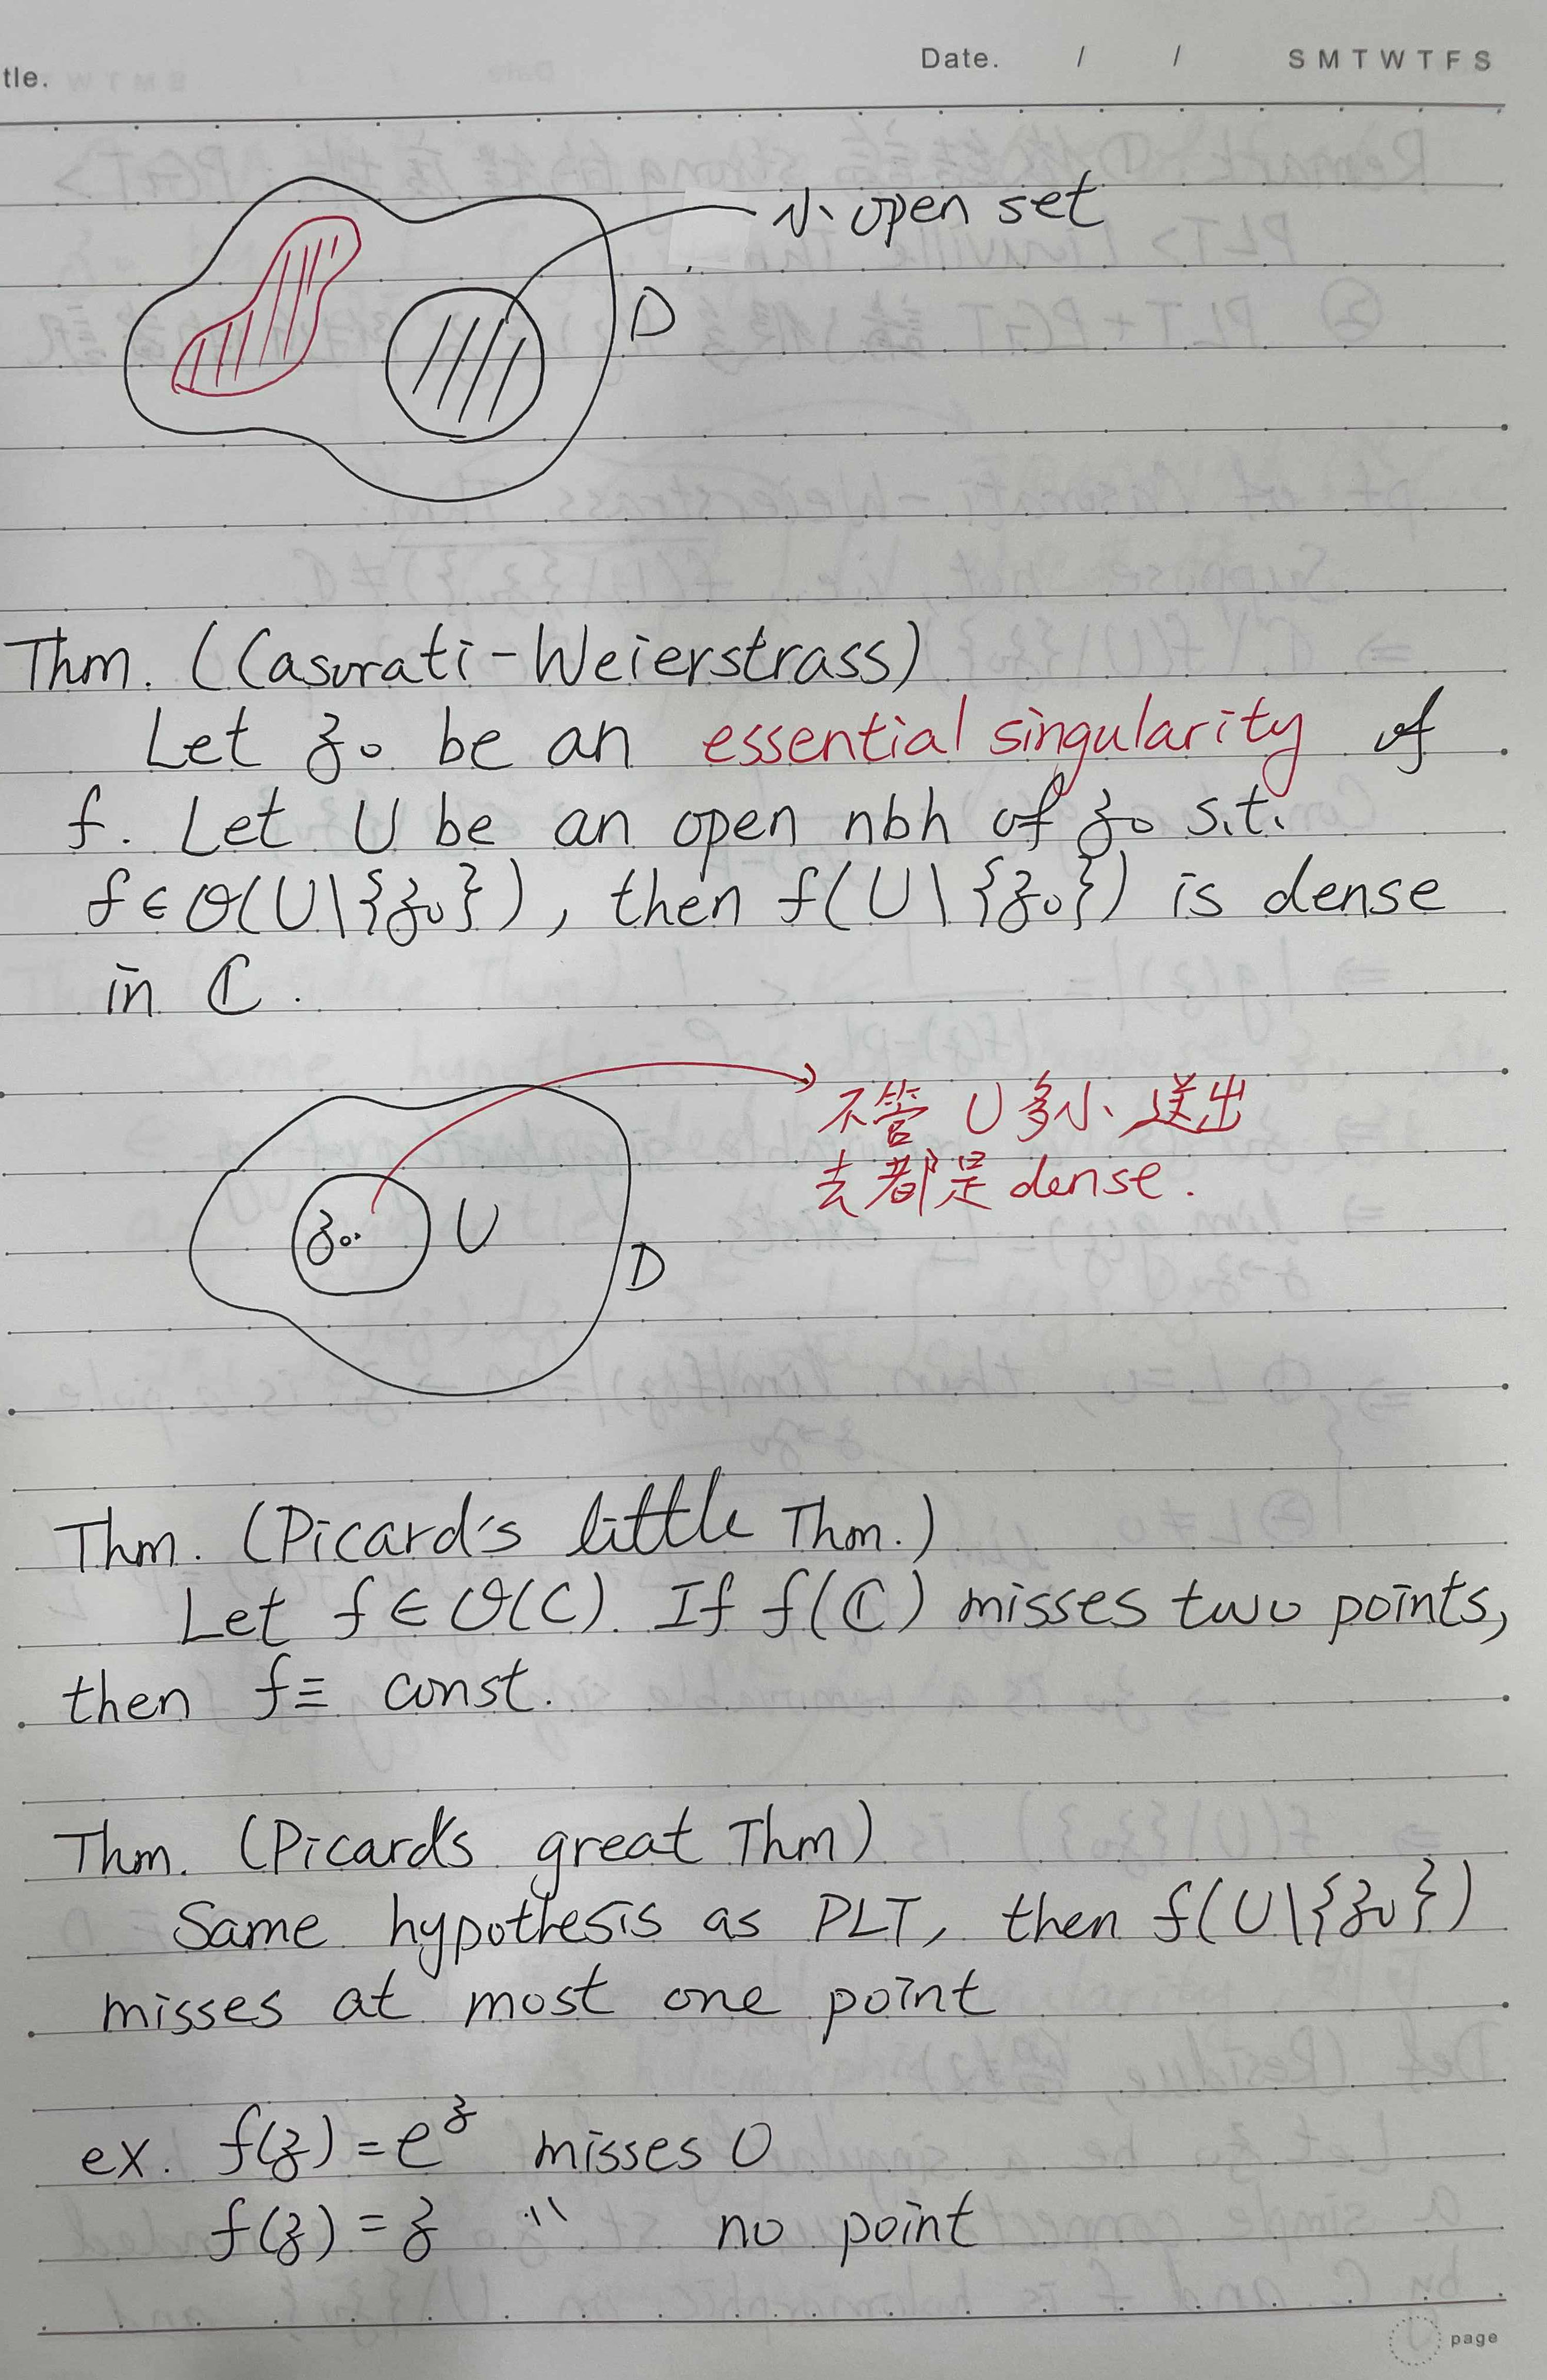 tle.
Date. / / S M T W T F S
小 open set
D
Thm. (Casorati-Weierstrass)
Let z₀ be an essential singularity of
f. Let U be an open nbh of z₀ s.t.
f∈O(U\{z₀}), then f(U\{z₀}) is dense
in ℂ.
不管 U 多小 送出
去都是 dense.
z₀ U
D
Thm. (Picard's little Thm.)
Let f∈O(C). If f(ℂ) misses two points,
then f≡ const.
Thm. (Picard's great Thm)
Same hypothesis as PLT, then f(U\{z₀})
misses at most one point
ex. f(z)=e^z misses 0
f(z)=z " no point
page